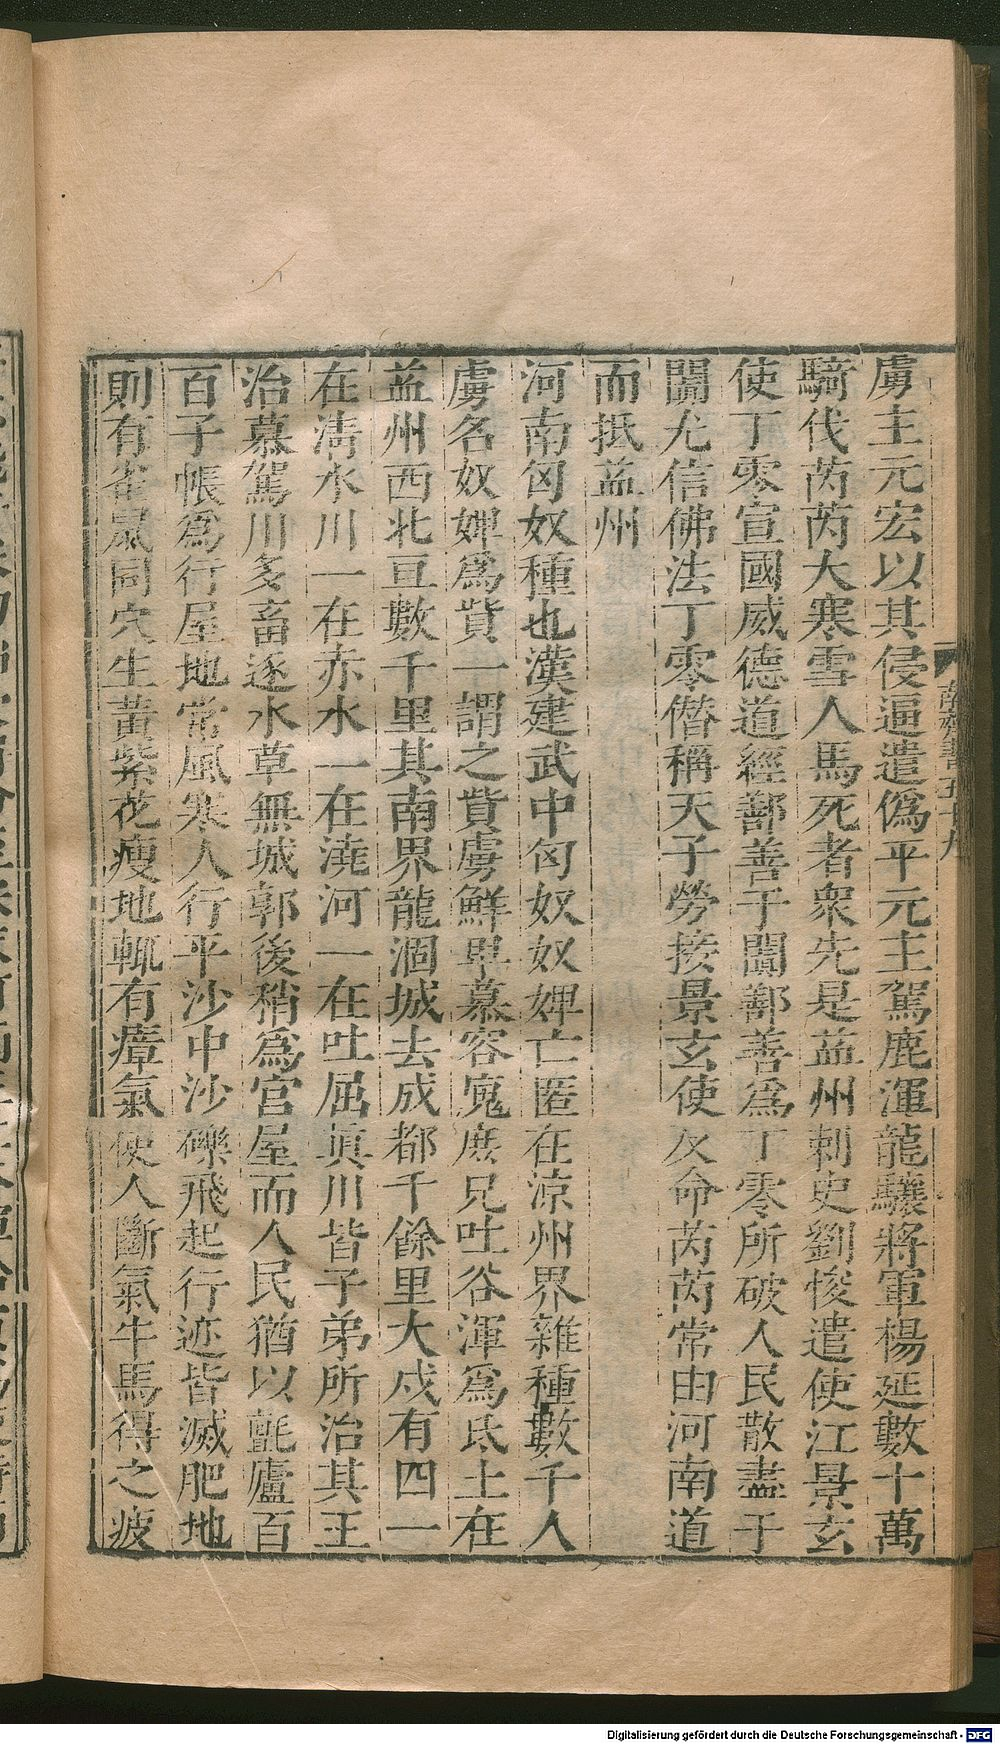 虜主元宏以其侵逼遣僞平元主駕鹿渾龍驤將軍楊延數十萬
騎伐芮芮大寒雪人馬死者衆先是益州刺史劉悛遣使江景玄
使丁零宣國威德道經鄯善于闐鄯善爲丁零所破人民散盡于
闐尤信佛法丁零僭稱天子勞接景玄使反命芮芮常由河南道
而抵益州
河南匈奴種也漢建武中匈奴奴婢亡匿在涼州界雜種數千人
虜名奴婢爲貲一謂之貲虜鮮卑慕容廆庶兄吐谷渾爲氐王在
益州西北亘數千里其南界龍涸城去成都千餘里大戍有四一
在淸水川一在赤水一在澆河一在吐屈眞川皆子弟所治其王
治慕駕川多畜逐水草無城郭後稍爲宮屋而人民猶以氈廬百
百子帳爲行屋地常風寒人行平沙中沙礫飛起行迹皆滅肥地
則有雀鼠同穴生黃紫花瘦地輒有瘴氣使人斷氣牛馬得之疲
南齊書五十九
Digitalisierung gefördert durch die Deutsche Forschungsgemeinschaft - DFG